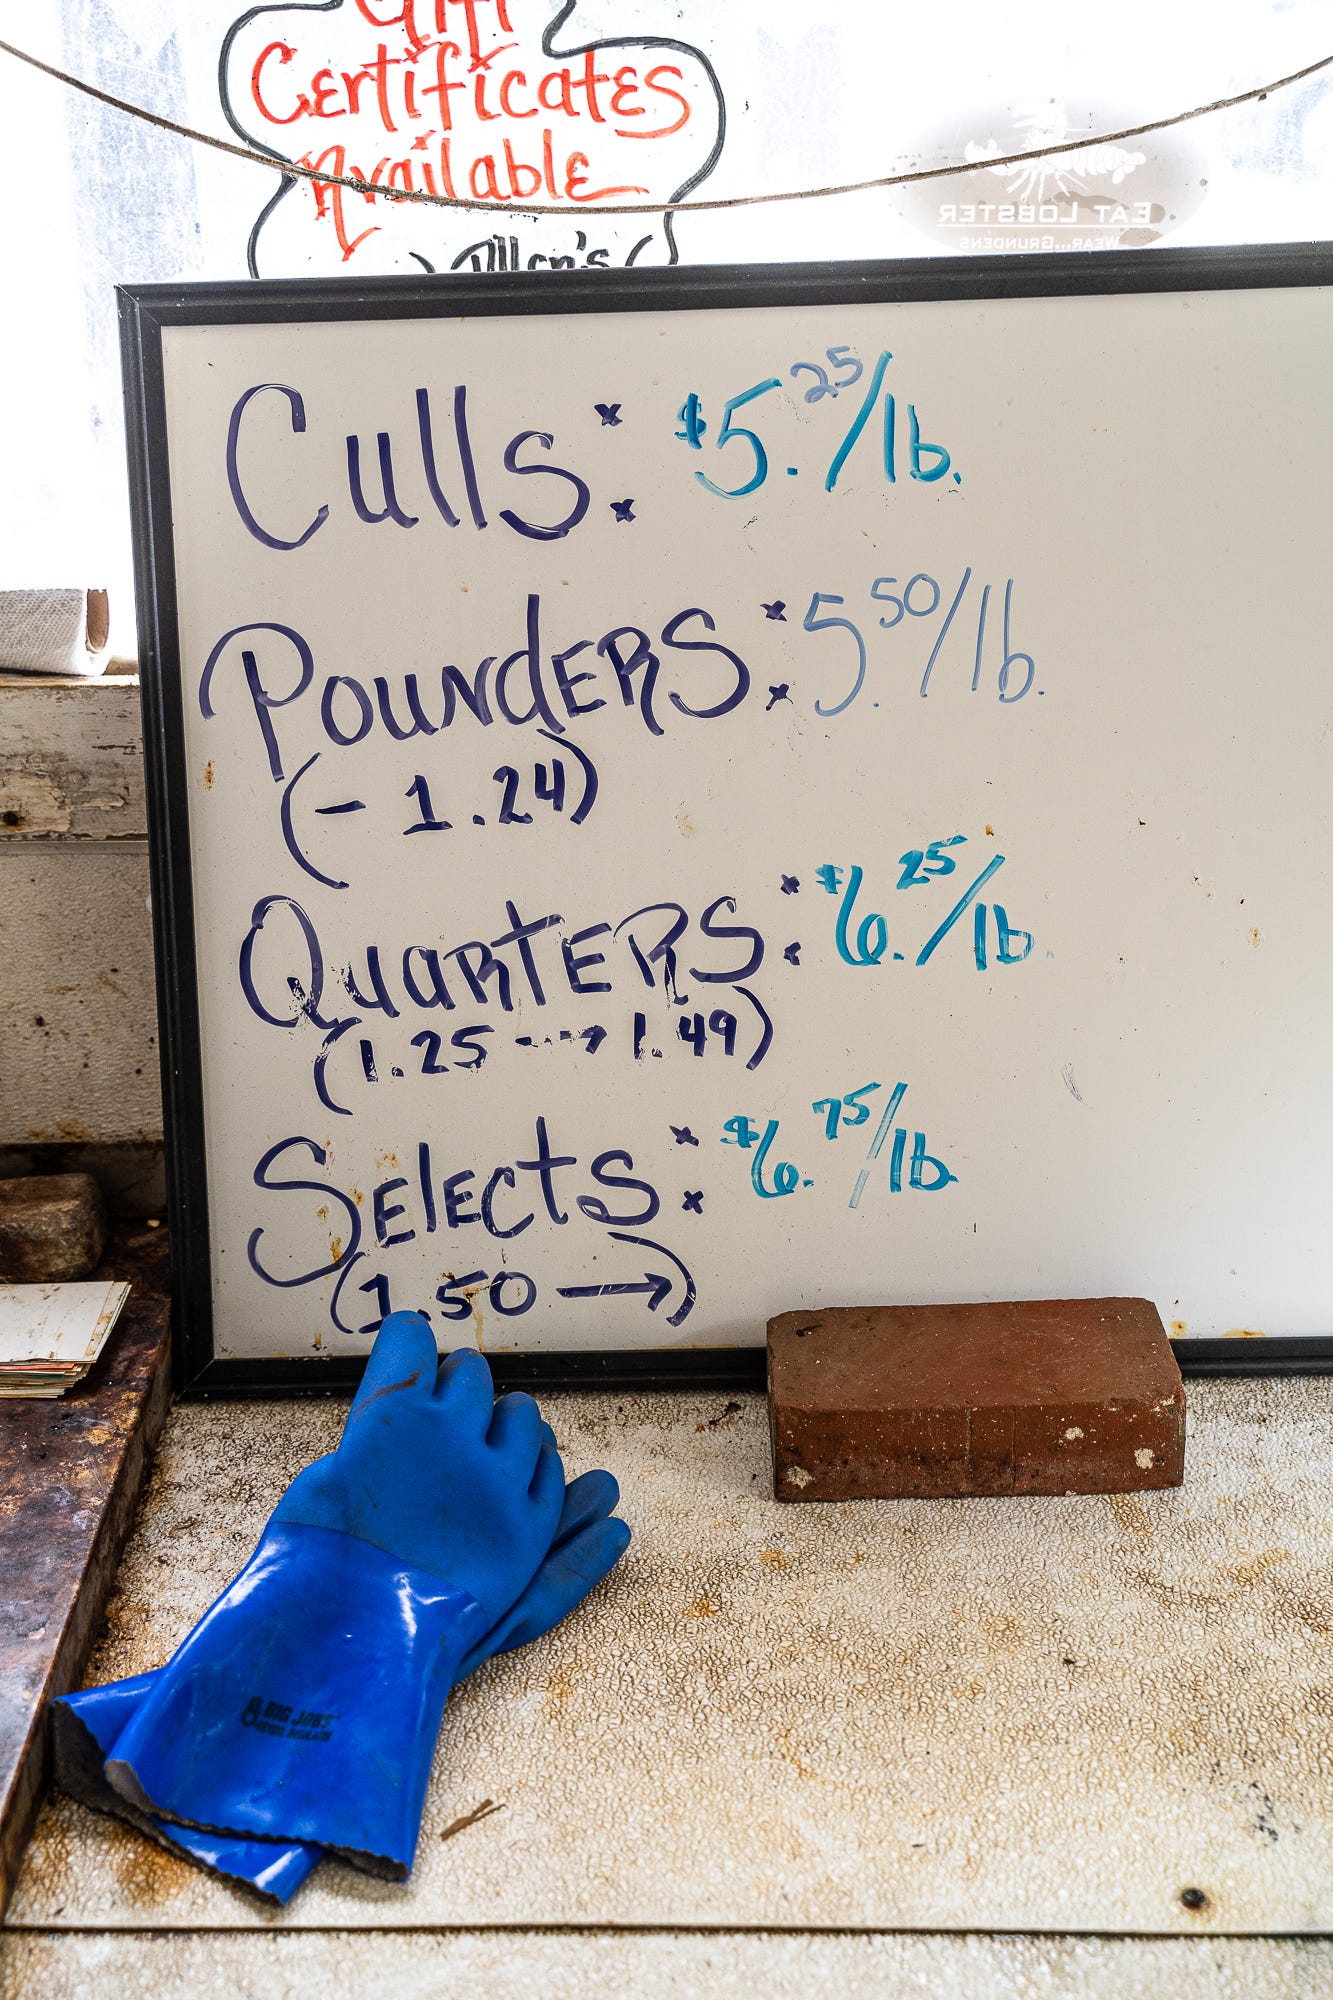 Gift
Certificates
Available
Allen's
EAT LOBSTER
WEAR...GRUNDÉNS
Culls: $5.25/lb.
Pounders: 5.50/lb.
(- 1.24)
Quarters: $6.25/lb.
(1.25 --→ 1.49)
Selects: $6.75/lb.
(1.50 →)
BIG JOBS